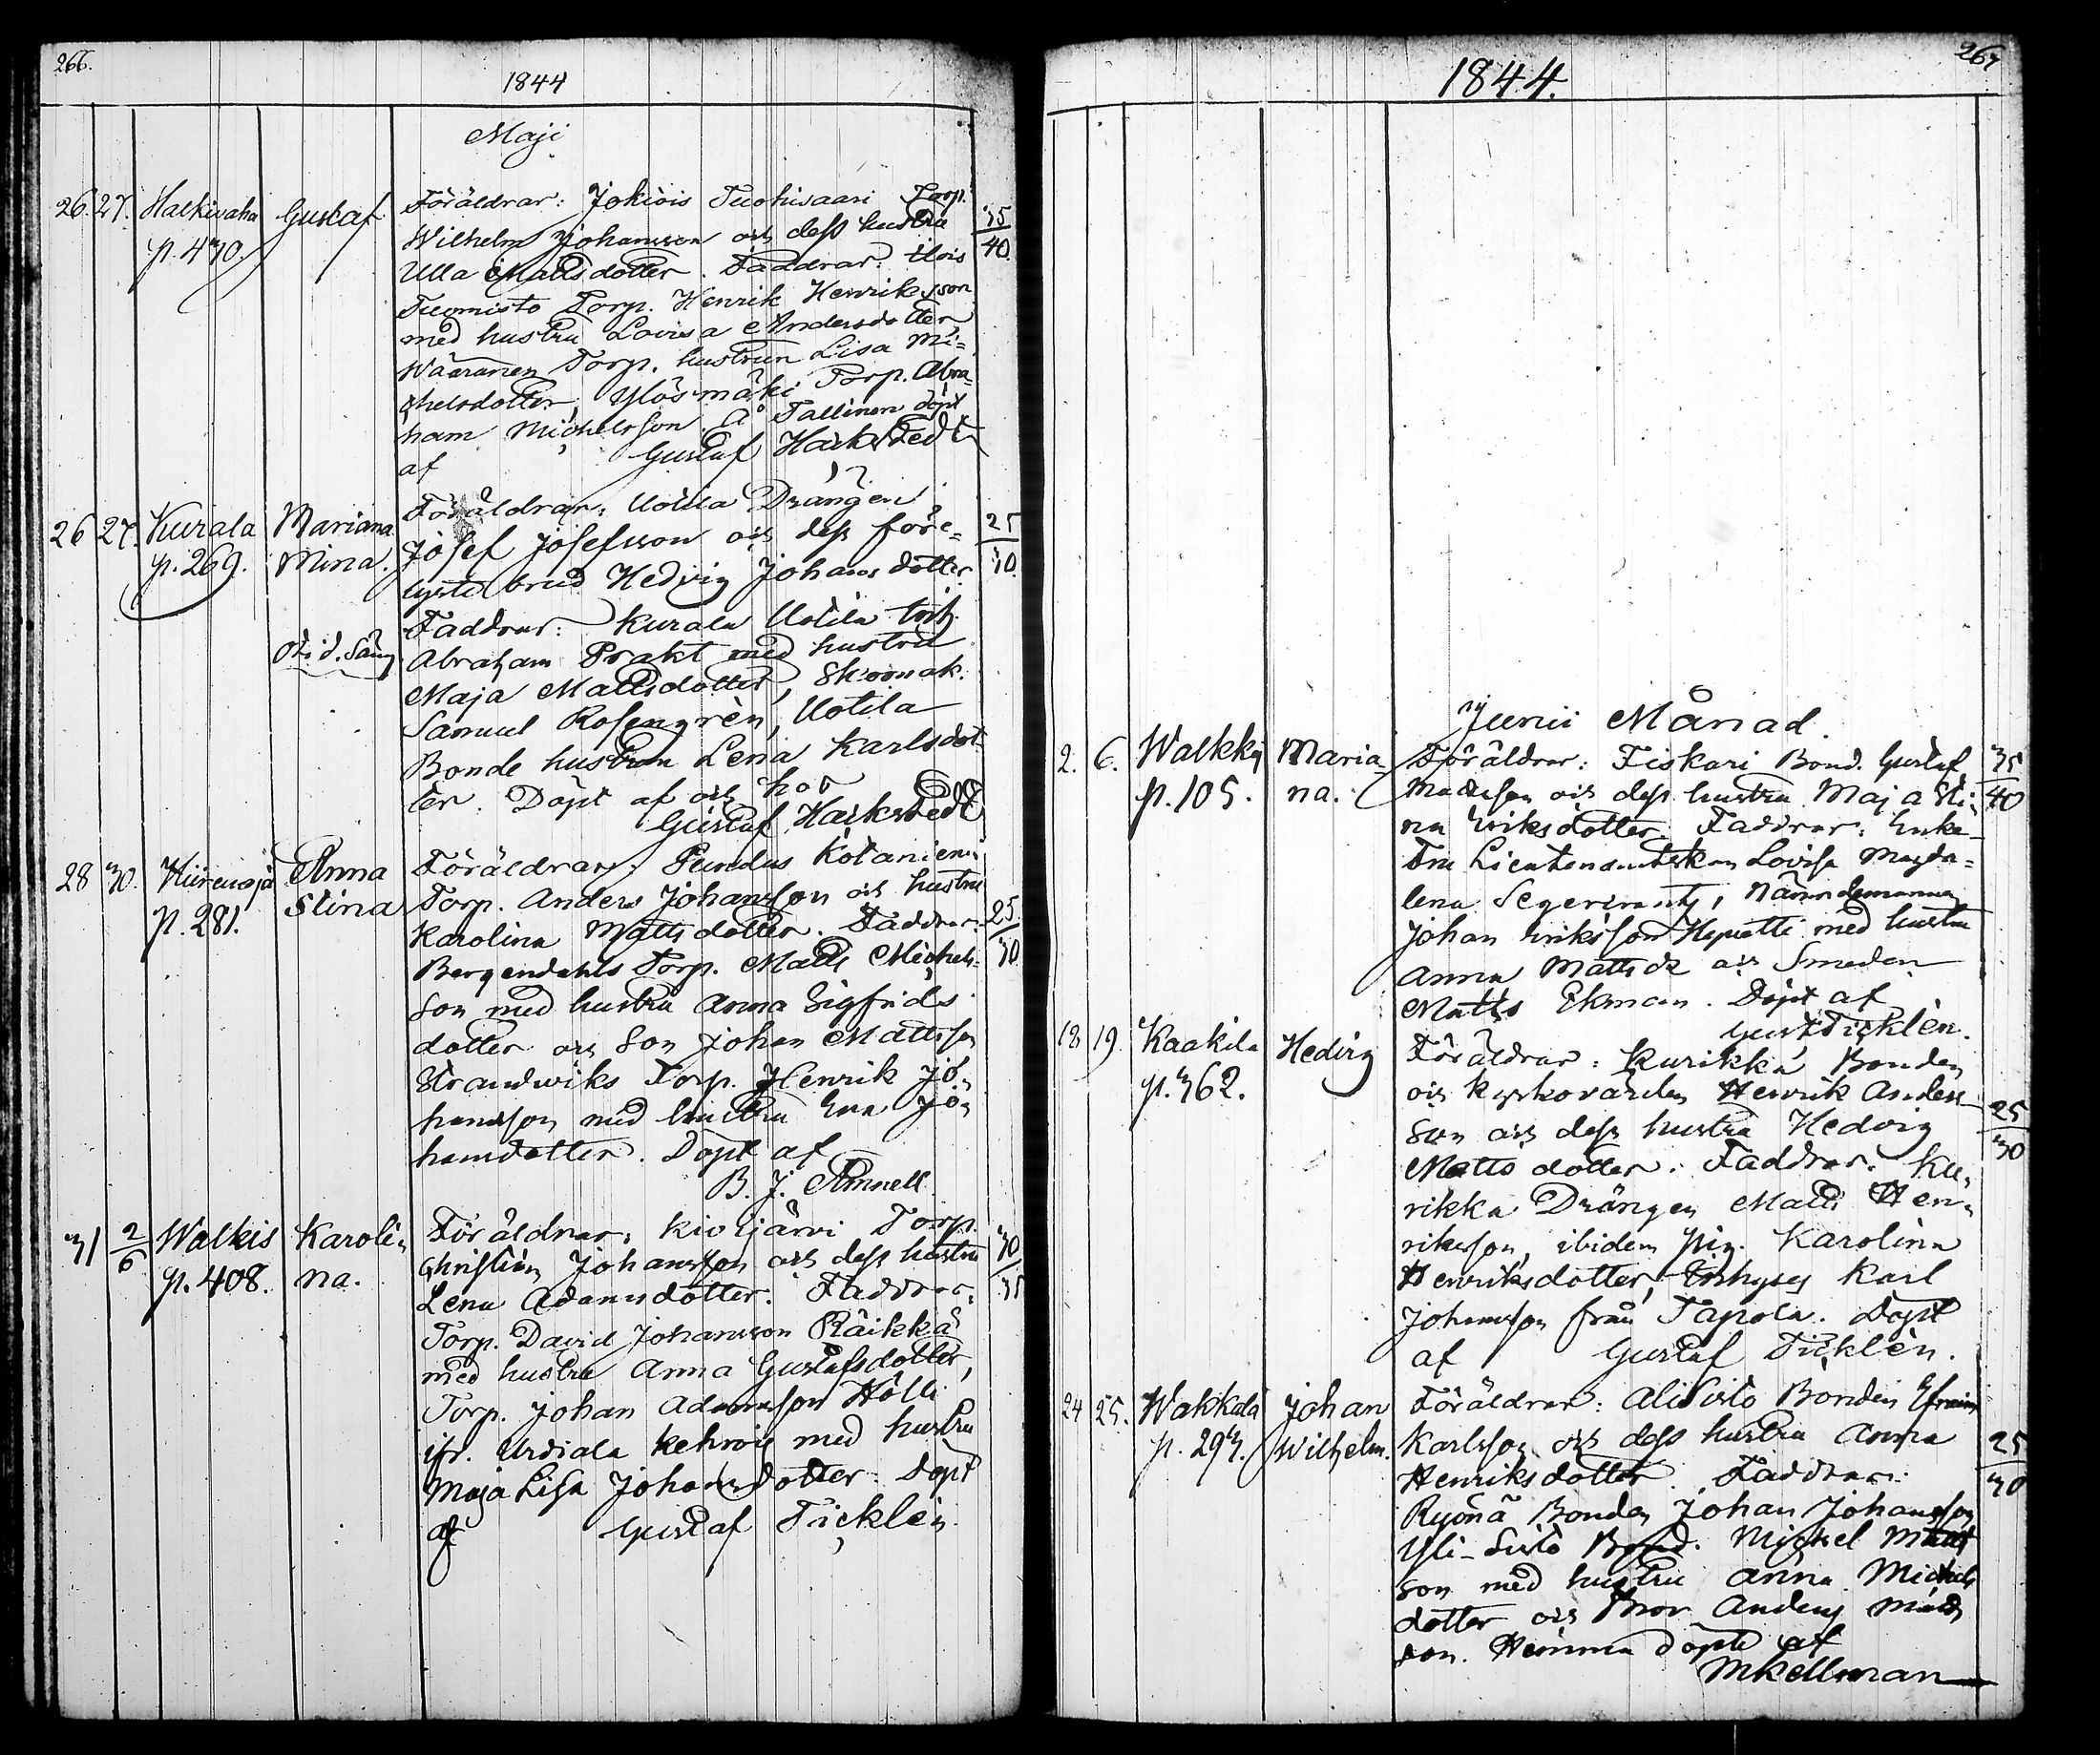 266.
1844
Maji
26. 27. Halkivaha Gustaf Föräldrar: Jokiois Tuohisaari Torp. 35
p. 470. Wilhelm Johansson och dess hustru 40.
Ulla Mattsdotter. Faddrar:
Tuomisto Torp. Henrik Henriksson
med hustru Lovisa Andersdotter
Torp. hustrun Lisa Mi=
chelsdotter, Ylösmäki Torp. Abra=
ham Michelsson. Å Tallinen döpt
af Gustaf
26 27. Kurala Mariana Föräldrar: Uotila Drängen 25
p. 269. Mina. Josef Josefsson och dess före= 30.
lyste brud Hedvig Johansdotter.
Faddrar: Kurala Uotila
Abraham Prakt med hustru
Maja Mattsdotter, Skoomak.
Samuel Rosengrèn, Uotila
Bonde hustrun Lena Karlsdot
ter. Döpt af och hos
Gustaf
28 30. Anna Föräldrar: Pundus Kotaniemi
p. 281. Stina Torp. Anders Johansson och hustru 25.
Karolina Mattsdotter. Faddrar: 30
Bergendahls Torp. Matts Michels=
son med hustru Anna Sigfrids
dotter och Son Johan Mattsson
Strandwiks Torp. Henrik Jo=
hansson med hustru Eva Jo=
hansdotter. Döpt af
B. J. Amnell.
31 2/6 Walkis Karoli= Föräldrar: Kiviijärvi Torp. 30
p. 408. na. Christian Johansson och dess hustru 35
Lena Adamsdotter. Faddrar:
Torp. David Johansson Räikkä
med hustru Anna Gustafsdotter,
Torp. Johan Adamsson Hölli
ifr. Urdiala med hustru
Maja Lisa Johansdotter. Döpt
af Gustaf Ticklén
267
1844.
Junii Månad.
2. 6. Walkky Maria= Föräldrar: Fiskari Bond. Gustaf 35
p. 105. na. och dess hustru Maja Sti= 40
na Eriksdotter. Faddrar: Enke=
Fru Lieutenantskan Lovisa Magda=
lena Segercrantz, Nämndemannen
Johan Eriksson med hustru
Anna Mattsdr och Smeden
Matts Ekman. Döpt af
Gust. Ticklén.
18 19. Kaakila Hedvig Föräldrar: Kurikka Bonden
p. 362. och Kyrkovärden Henrik Anders= 25
son och dess hustru Hedvig 30
Mattsdotter. Faddrar: Ku=
rikka Drängen Matts Hen=
riksson, ibidem Pig. Karolina
Henriksdotter, Inhyses Karl
Johansson från Tapola. Döpt
af Gustaf Ticklén.
24 25. Wakkala Johan Föräldrar: Ali Sisto Bonden Efraim
p. 293. Wilhelm. Karlsson och dess hustru Anna 25
Henriksdotter. Faddrar: 30
Ryönä Bonden Johan Johansson
Yli-Sisto Bond. Michel Matts
son med hustru Anna Michels
dotter och Bror Anders Matts
son. Hemma döpte af
MKellman